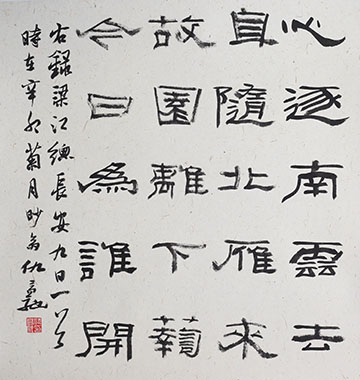 心逐南雲去
身隨北雁來
故園離下蘜
今日為誰開
右錄梁江總長安九日一首
時在辛卯菊月